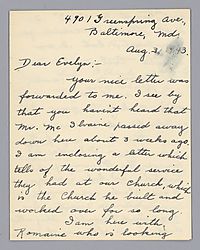 4901 Greenspring Ave.,
Baltimore, Md.
Aug. 3, 1943.
Dear Evelyn:-
Your nice letter was
forwarded to me. I see by
that you havn't heard that
Mr. Mc Ilvaine passed away
down here about 3 weeks ago.
I am enclosing a letter which
tells of the wonderful service
they had at our Church, which
is the Church he built and
worked over for so long.
I am here with
Romaine who is looking